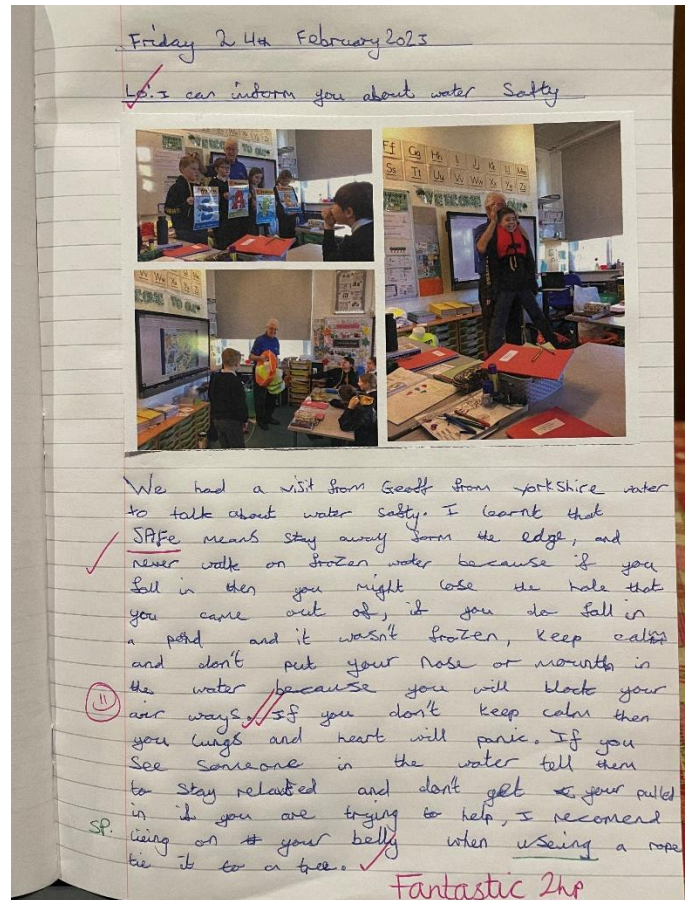 Friday 24th February 2023
Lo: I can inform you about water Safty
Ff Gg Hh Ii Jj Kk Ll Mm
Ss Tt Uu Vv Ww Xx Yy Zz
We had a visit from Geoff from yorkShire water
to talk about water safty. I learnt that
SAFe means stay away form the edge, and
never walk on frozen water because if you
fall in then you might lose the hole that
you came out of, if you do fall in
a pond and it wasn't frozen, keep calm
and don't put your nose or mounth in
the water because you will block your
air ways. If you don't keep calm then
you lungs and heart will panic. If you
see someone in the water tell them
to stay relaxed and don't get your pulled
in if you are trying to help, I recomend
SP.
lieing on your belly when useing a rope
tie it to a tree.
Fantastic 2hp